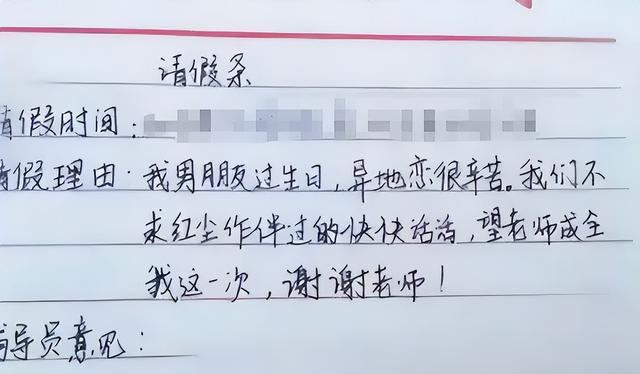 请假条
请假时间：
请假理由：我男朋友过生日，异地恋很辛苦。我们不
求红尘作伴过的快快活活，望老师成全
我这一次，谢谢老师！
辅导员意见：